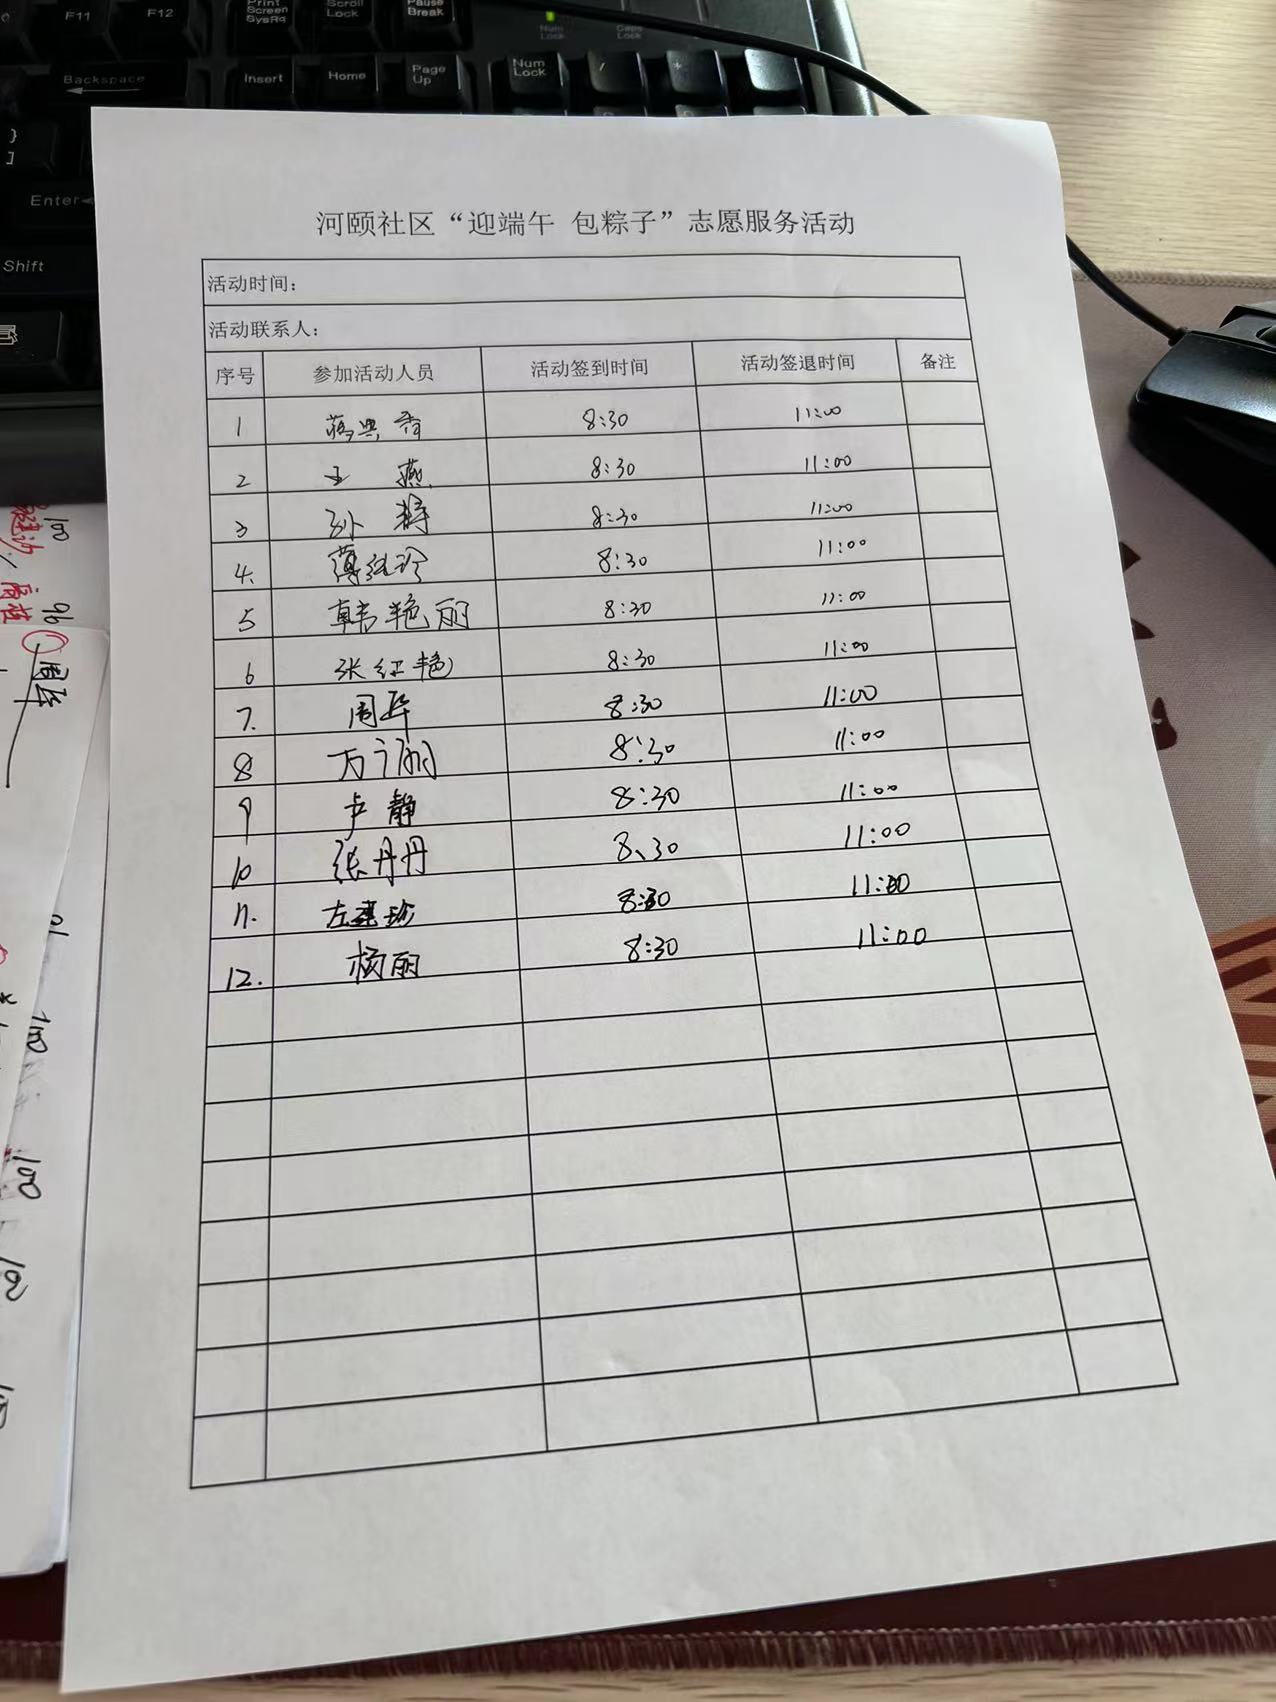 F11
F12
Print Screen SysRq
Scroll Lock
Pause Break
Num Lock
Caps Lock
Backspace
Insert
Home
Page Up
Num Lock
/
*
}
]
Enter
Shift
河颐社区“迎端午 包粽子”志愿服务活动
活动时间：
活动联系人：
序号 参加活动人员 活动签到时间 活动签退时间 备注
1 8:30 11:00
2 王 燕 8:30 11:00
3 孙 8:30 11:00
4. 8:30 11:00
5 韩艳丽 8:30 11:00
6 张红艳 8:30 11:00
7. 周华 8:30 11:00
8 8:30 11:00
9 卢静 8:30 11:00
10 张丹丹 8、30 11:00
11. 左建珍 8:30 11:00
12. 杨丽 8:30 11:00
100
96
周华
100
100